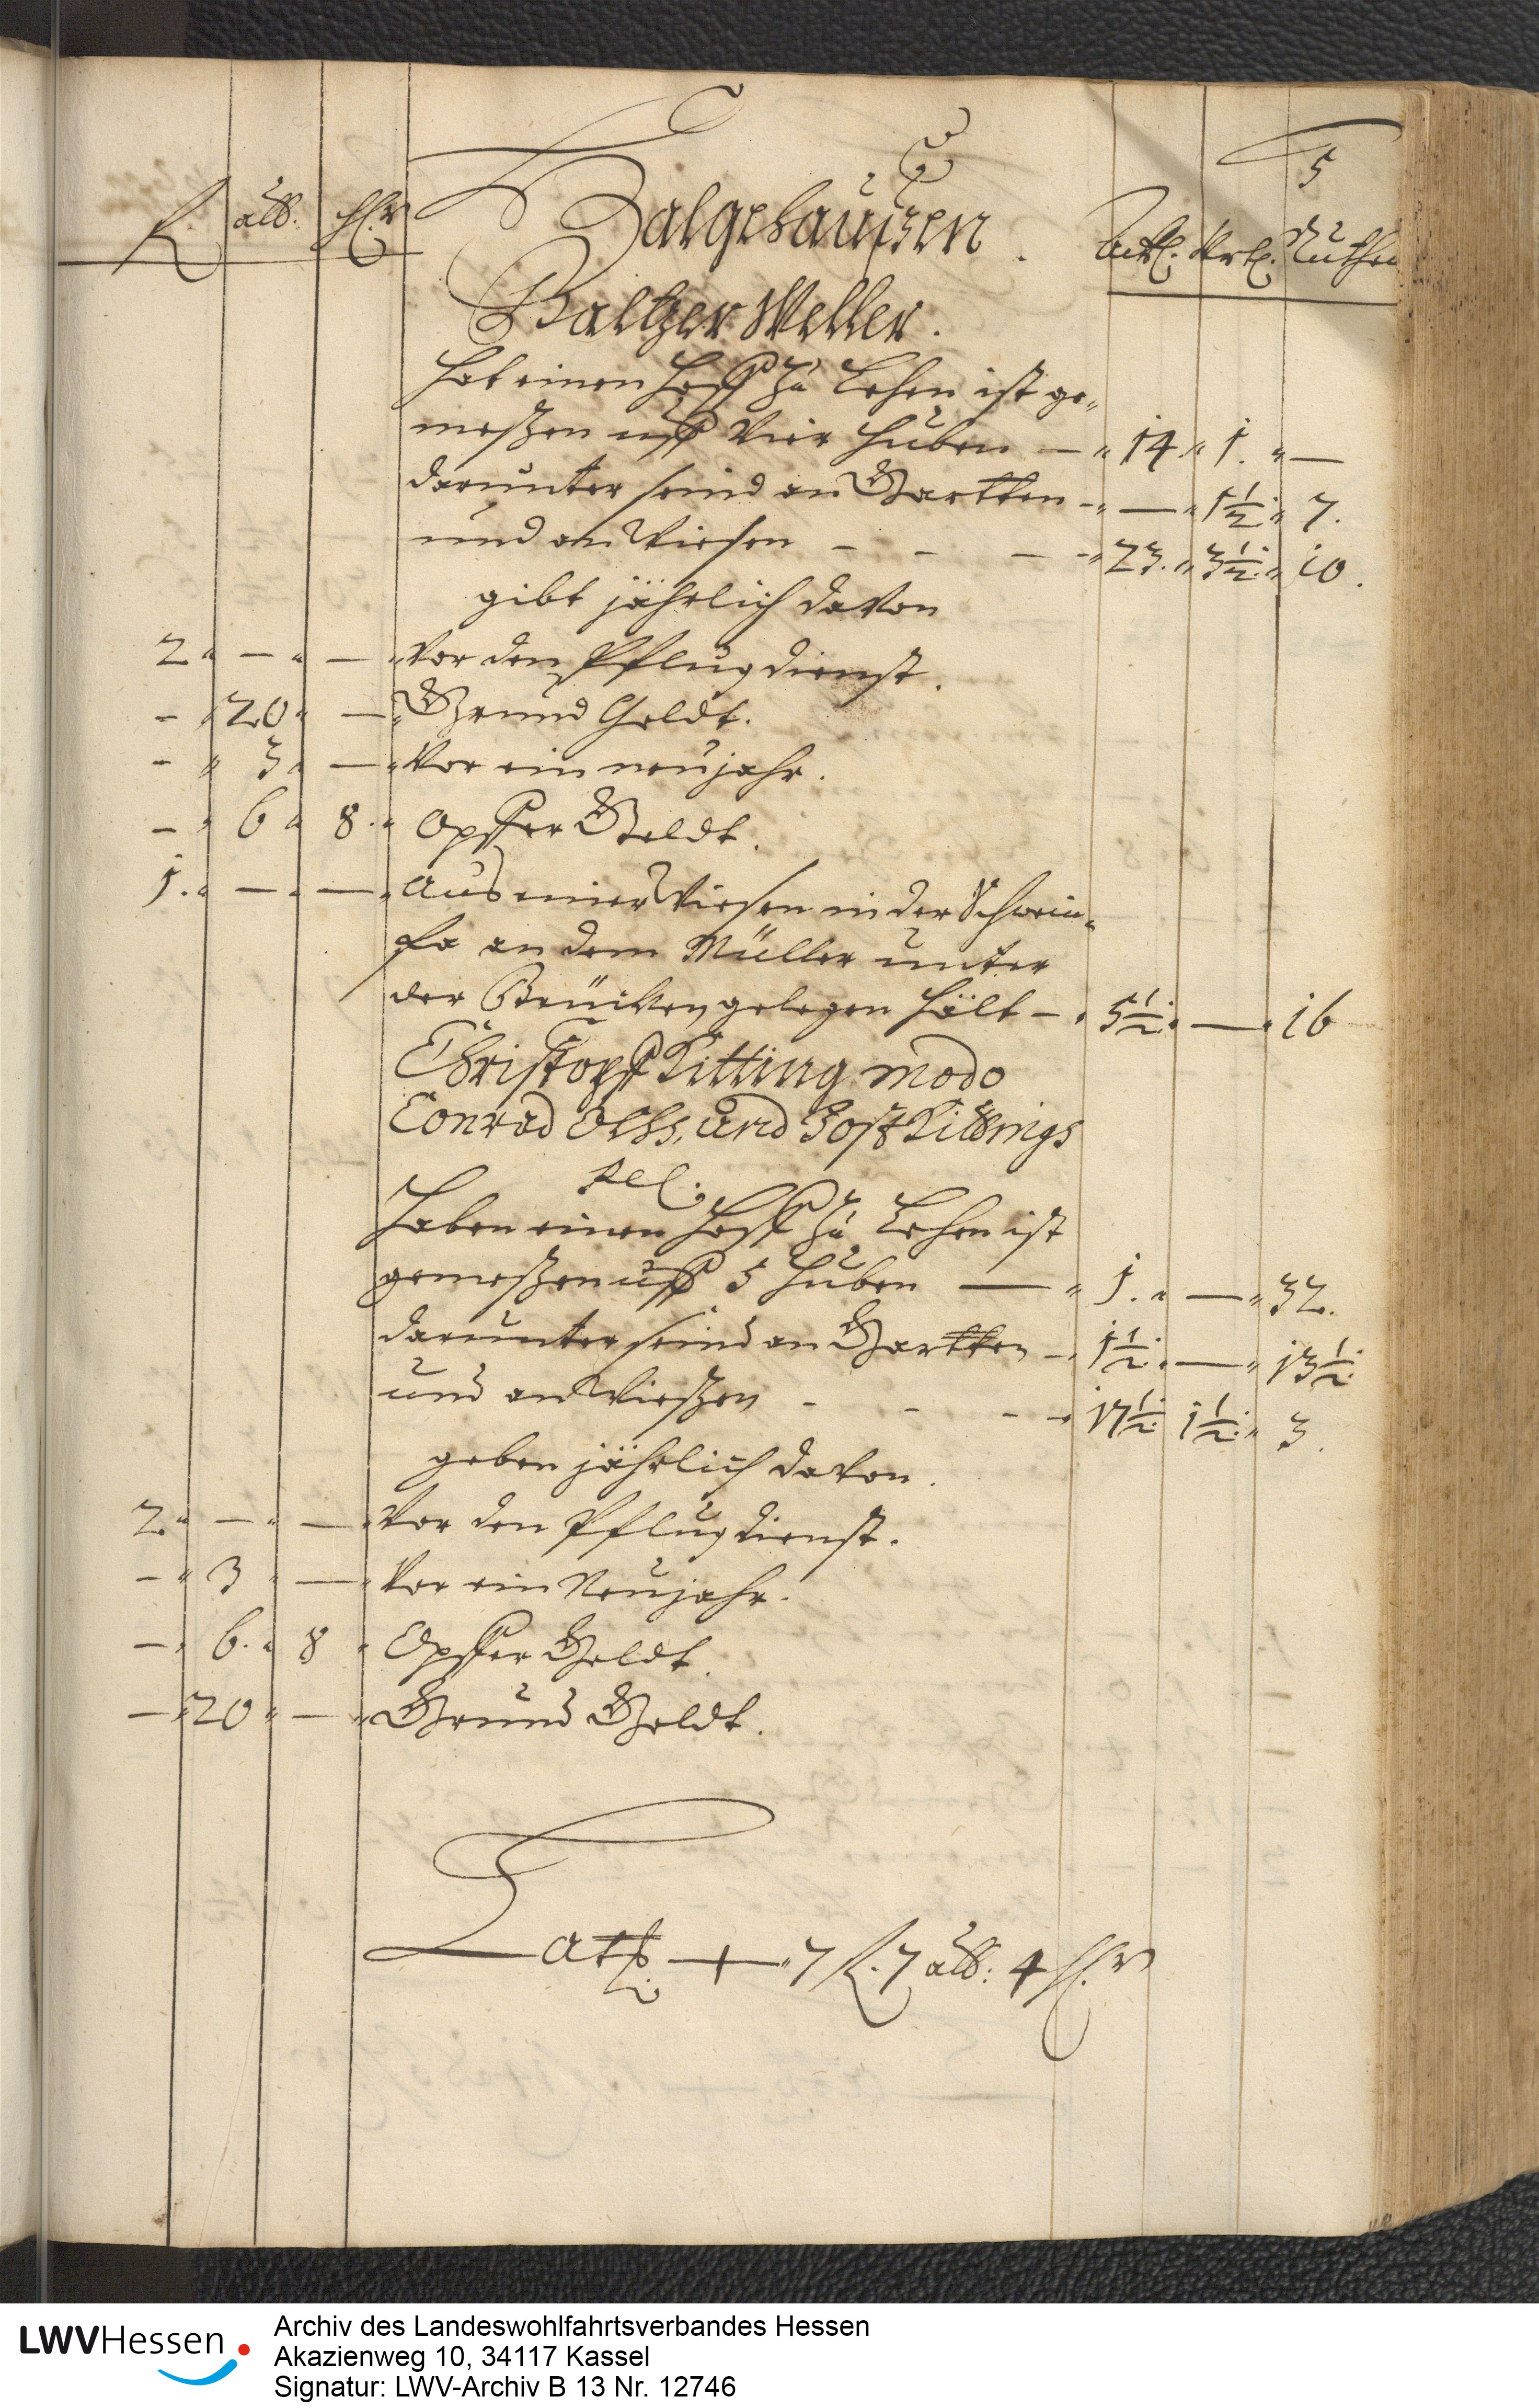 5
fl. alb. hlr
Halgehausen.
Ackr. Vrtl. Ruthen
Baltzer Weller.
hat einen Hoff zu Lehen ist ge-
meßen uff Vier Huben — 14. 1. —
darunter seind an Gartten — — 1½. 7.
und an Wiesen - - - 23. 3½. 10.
gibt jährlich davon
2. — — Vor den Pflugdienst.
- 20. — Grund Geldt.
- 3. — Vor ein neujahr.
- 6. 8. Opffer Geldt.
1. — — Aus einer Wiesen in der Schwein-
fa an dem Müller unter
der Brücken gelegen hält — 5½. — 16
Christoff Kitting modo
Conrad Ochs, und Jost Kittings
Rel.
Haben einen Hoff zu Lehen ist
gemeßen uff 5 Huben — 1. — 32.
darunter seind an Gartten — 1½. — 13½.
und an Wießen - - - 17½. 1½. 3.
geben jährlich davon.
2. — — Vor den Pflugdienst.
- 3 — Vor ein Neujahr.
- 6. 8 Opffer Geldt.
- 20 — Grund Geldt.
Latß. — 7 fl. 7 alb: 4 hlr
LWVHessen
Archiv des Landeswohlfahrtsverbandes Hessen
Akazienweg 10, 34117 Kassel
Signatur: LWV-Archiv B 13 Nr. 12746